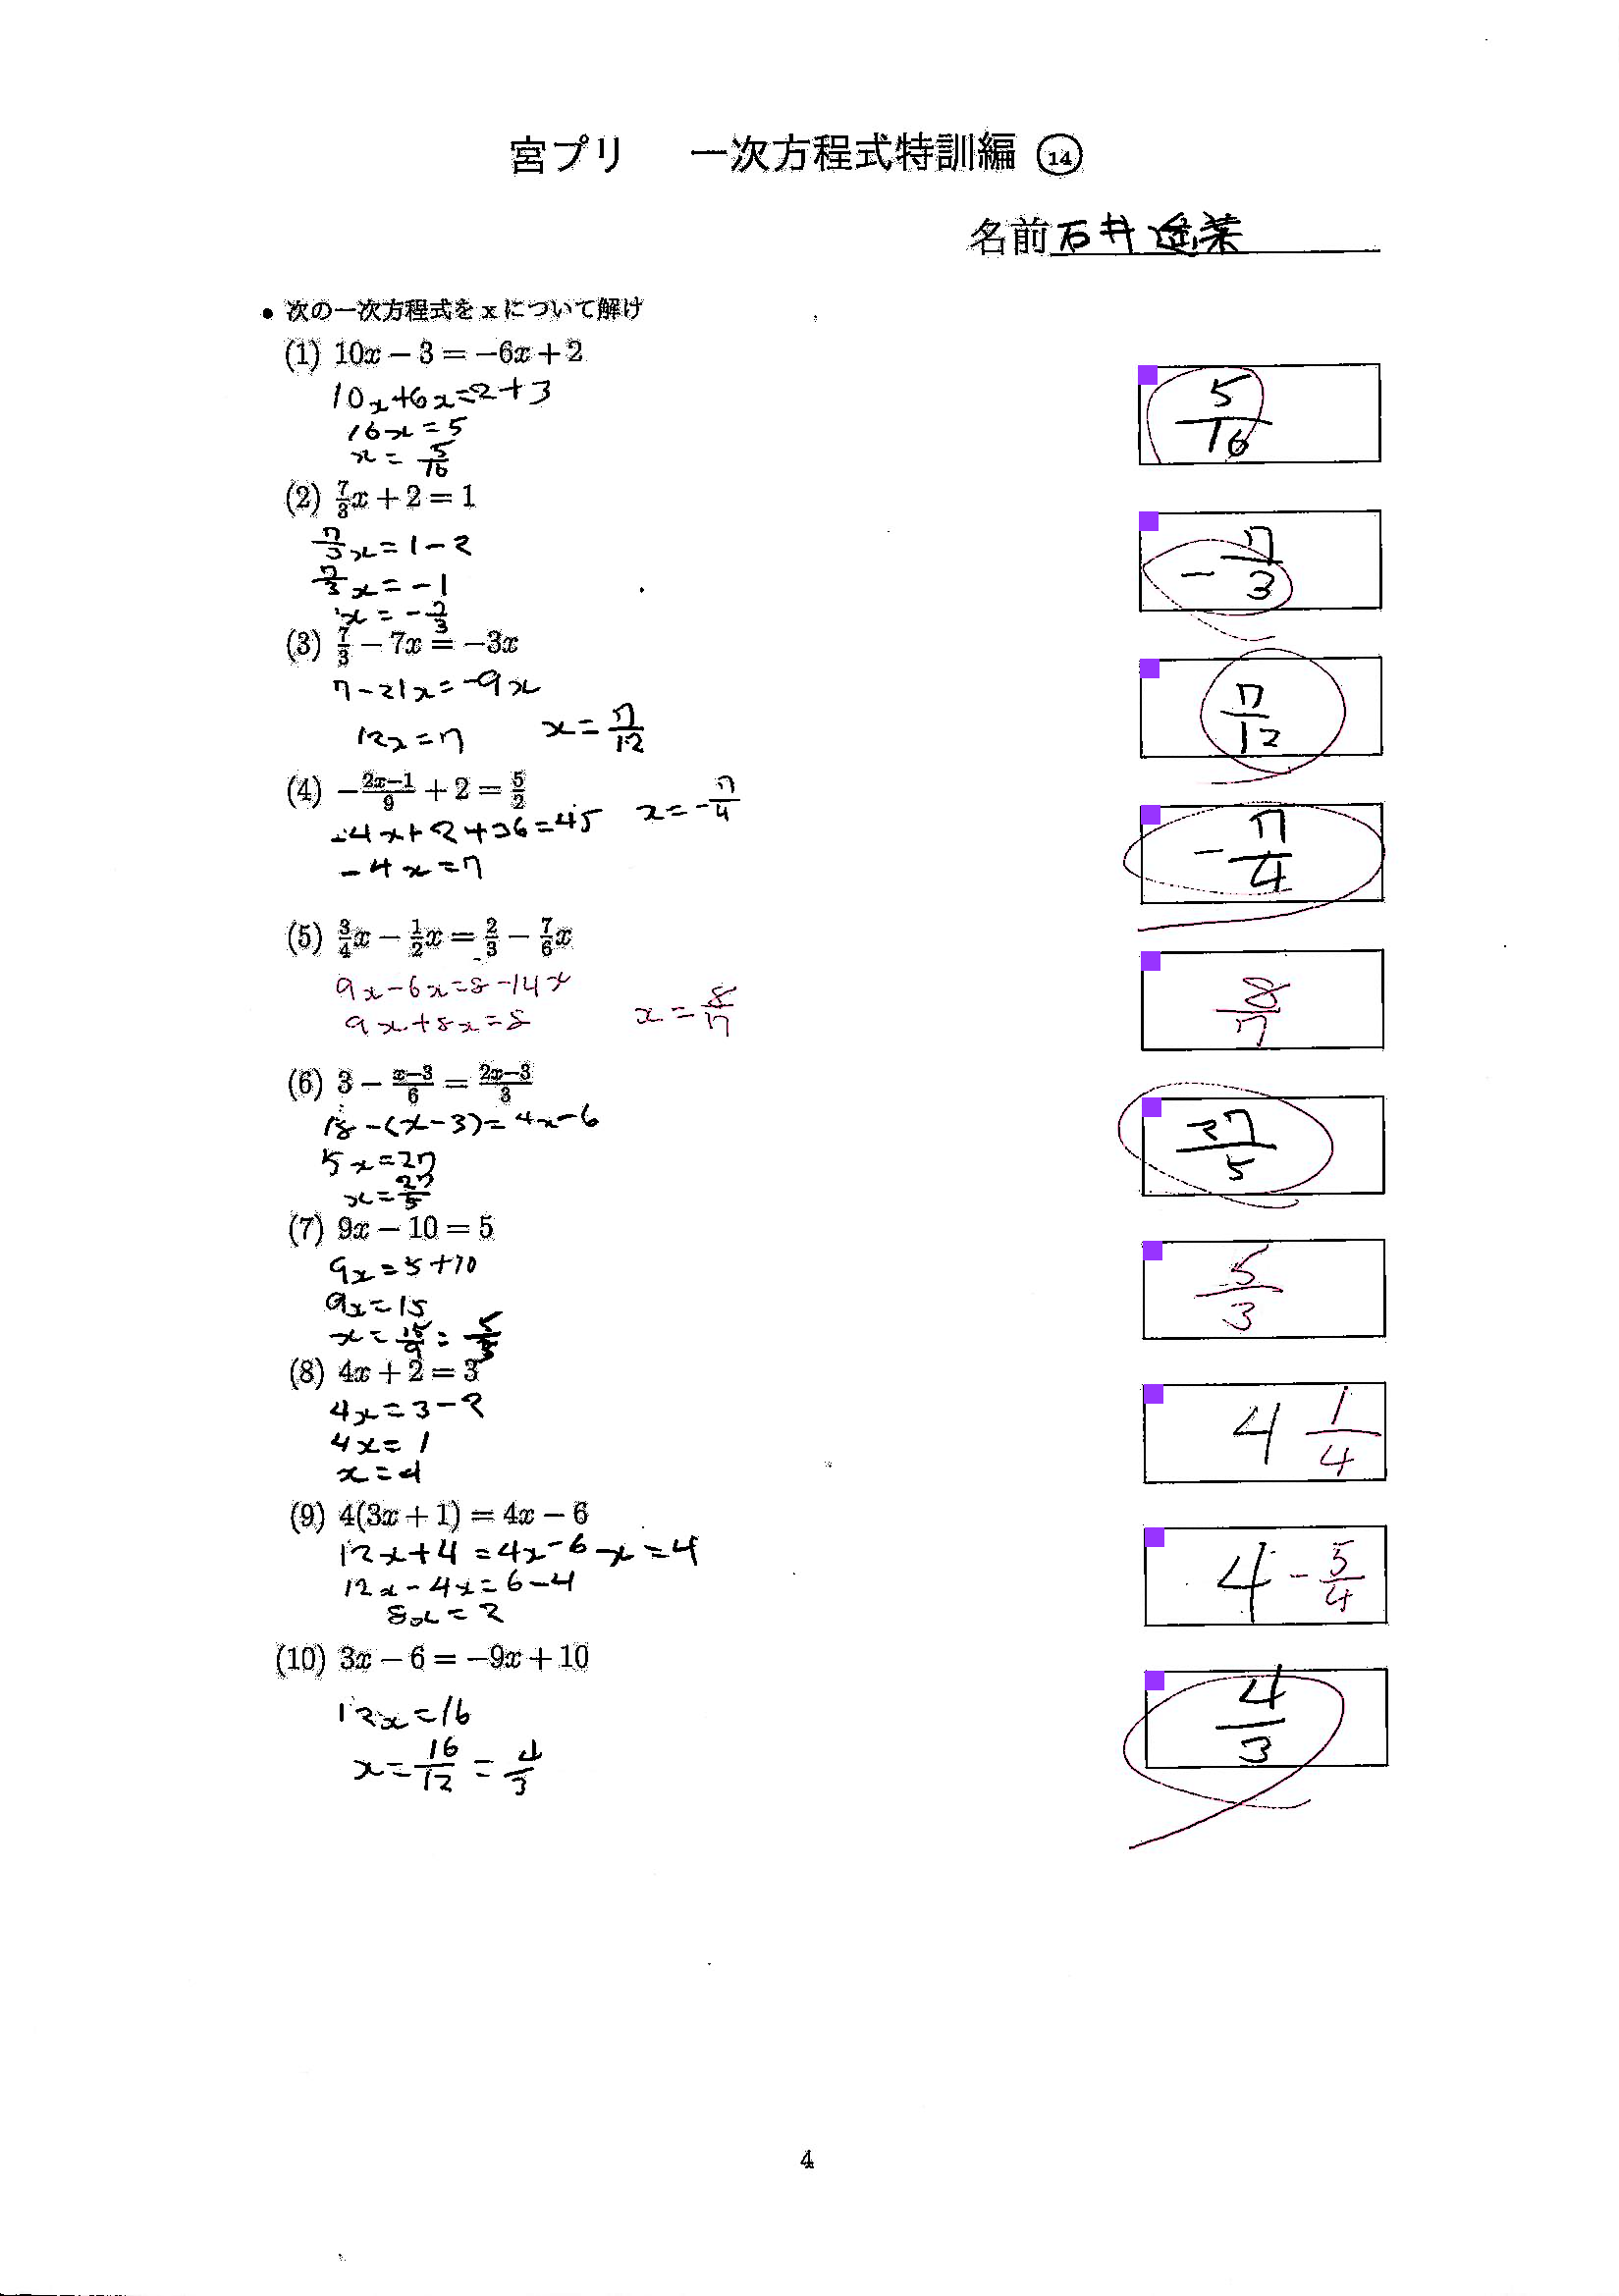 宮プリ 一次方程式特訓編 ⑭
名前 石井 遥菜
● 次の一次方程式を x について解け
(1) 10x − 3 = −6x + 2
10x+6x=2+3
16x=5
x= 5/16
5/16
(2) 7/3 x + 2 = 1
7/3 x=1-2
7/3 x=-1
x=-7/3
-7/3
(3) 7/3 − 7x = −3x
7-21x=-9x
12x=7 x=7/12
7/12
(4) −(2x−1)/9 + 2 = 5/2
-4x+2+36=45 x=-7/4
-4x=7
-7/4
(5) 3/4 x − 1/2 x = 2/3 − 7/6 x
9x-6x=8-14x
9x+8x=8 x=8/17
8/7
(6) 3 − (x−3)/6 = (2x−3)/3
18-(x-3)=4x-6
5x=27
x=27/5
27/5
(7) 9x − 10 = 5
9x=5+10
9x=15
x=15/9=5/3
5/3
(8) 4x + 2 = 3
4x=3-2
4x=1
x=4
4 1/4
(9) 4(3x + 1) = 4x − 6
12x+4=4x-6 x=4
12x-4x=6-4
8x=2
4 -5/4
(10) 3x − 6 = −9x + 10
12x=16
x=16/12=4/3
4/3
4